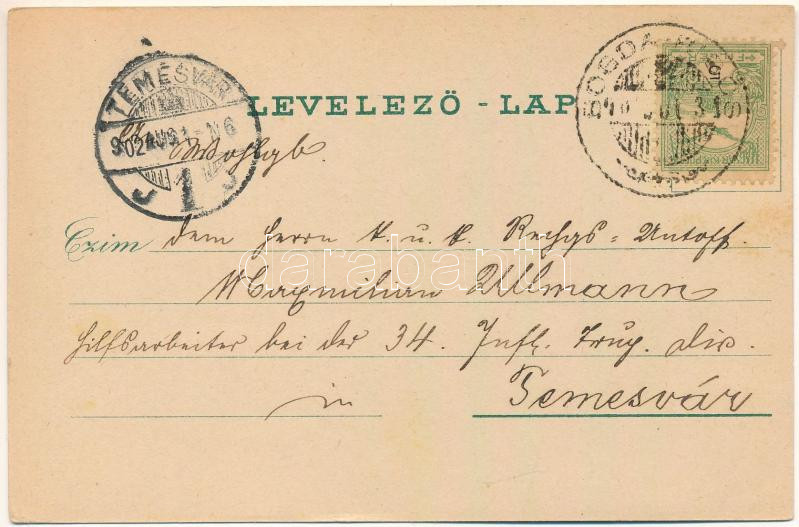 TEMESVÁR
902 AUG 1 - N 6
1
LEVELEZŐ - LAP
Wohlgb.
Czim dem Herrn k. u. k. Rechgs = Untoff.
Maximilian Ullmann
Hilfsarbeiter bei der 34. Inft. Trup. div.
in Temesvár
darabanth